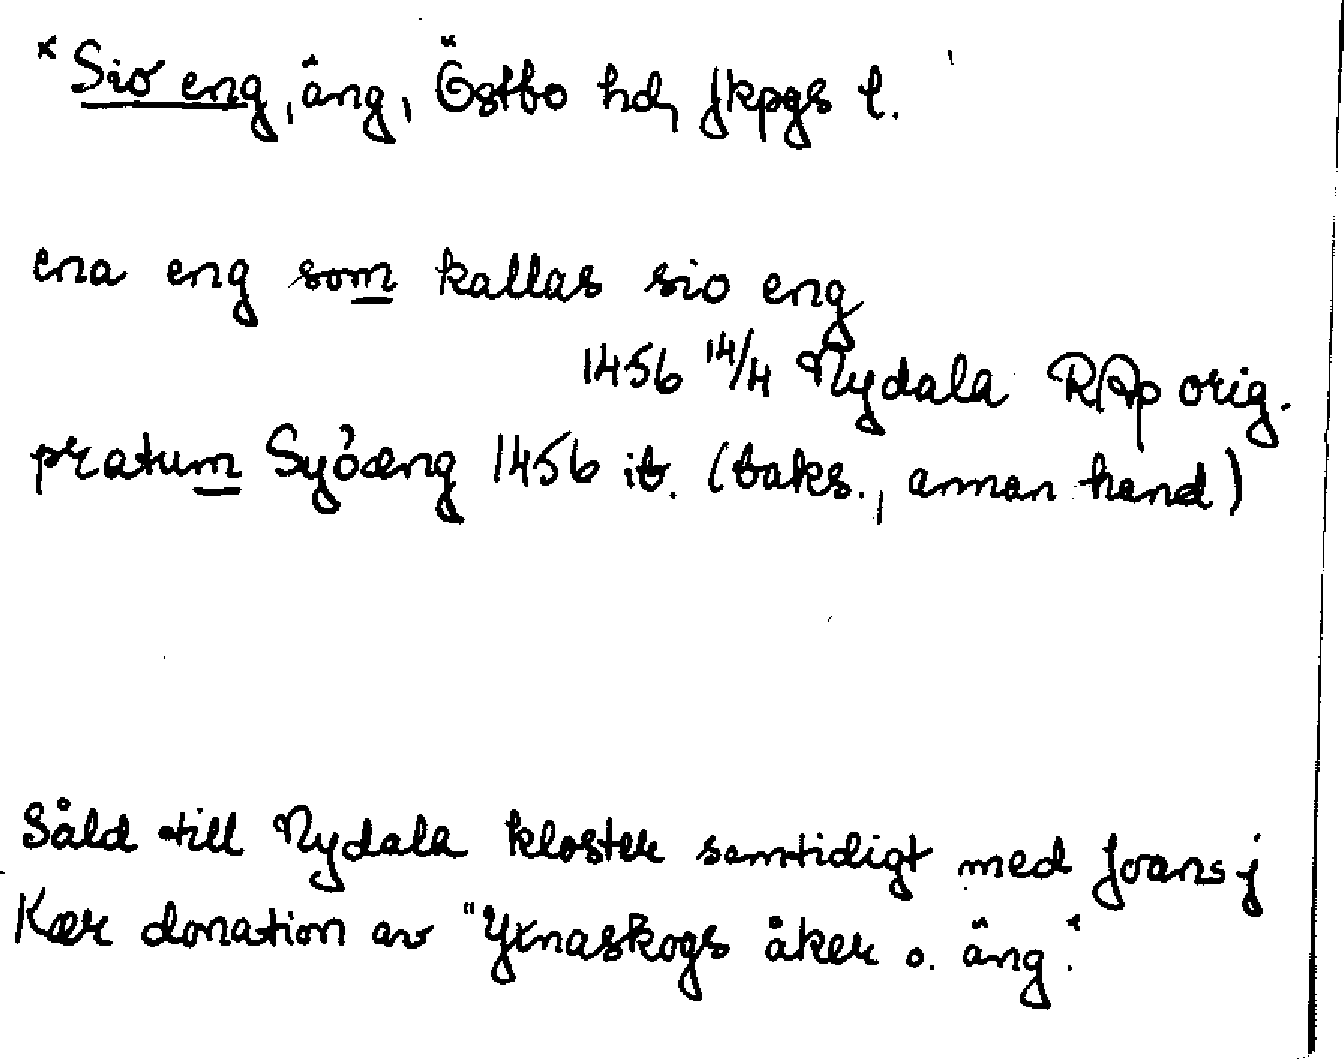 *Sio eng, äng, Östbo hd, Jkpgs l.
ena eng som kallas sio eng
1456 14/4 Nydala RAp orig.
pratum Syöæng 1456 ib. (baks., annan hand)
Såld till Nydala kloster samtidigt med Joans j
Kær donation av "Yxnaskogs åker o. äng".